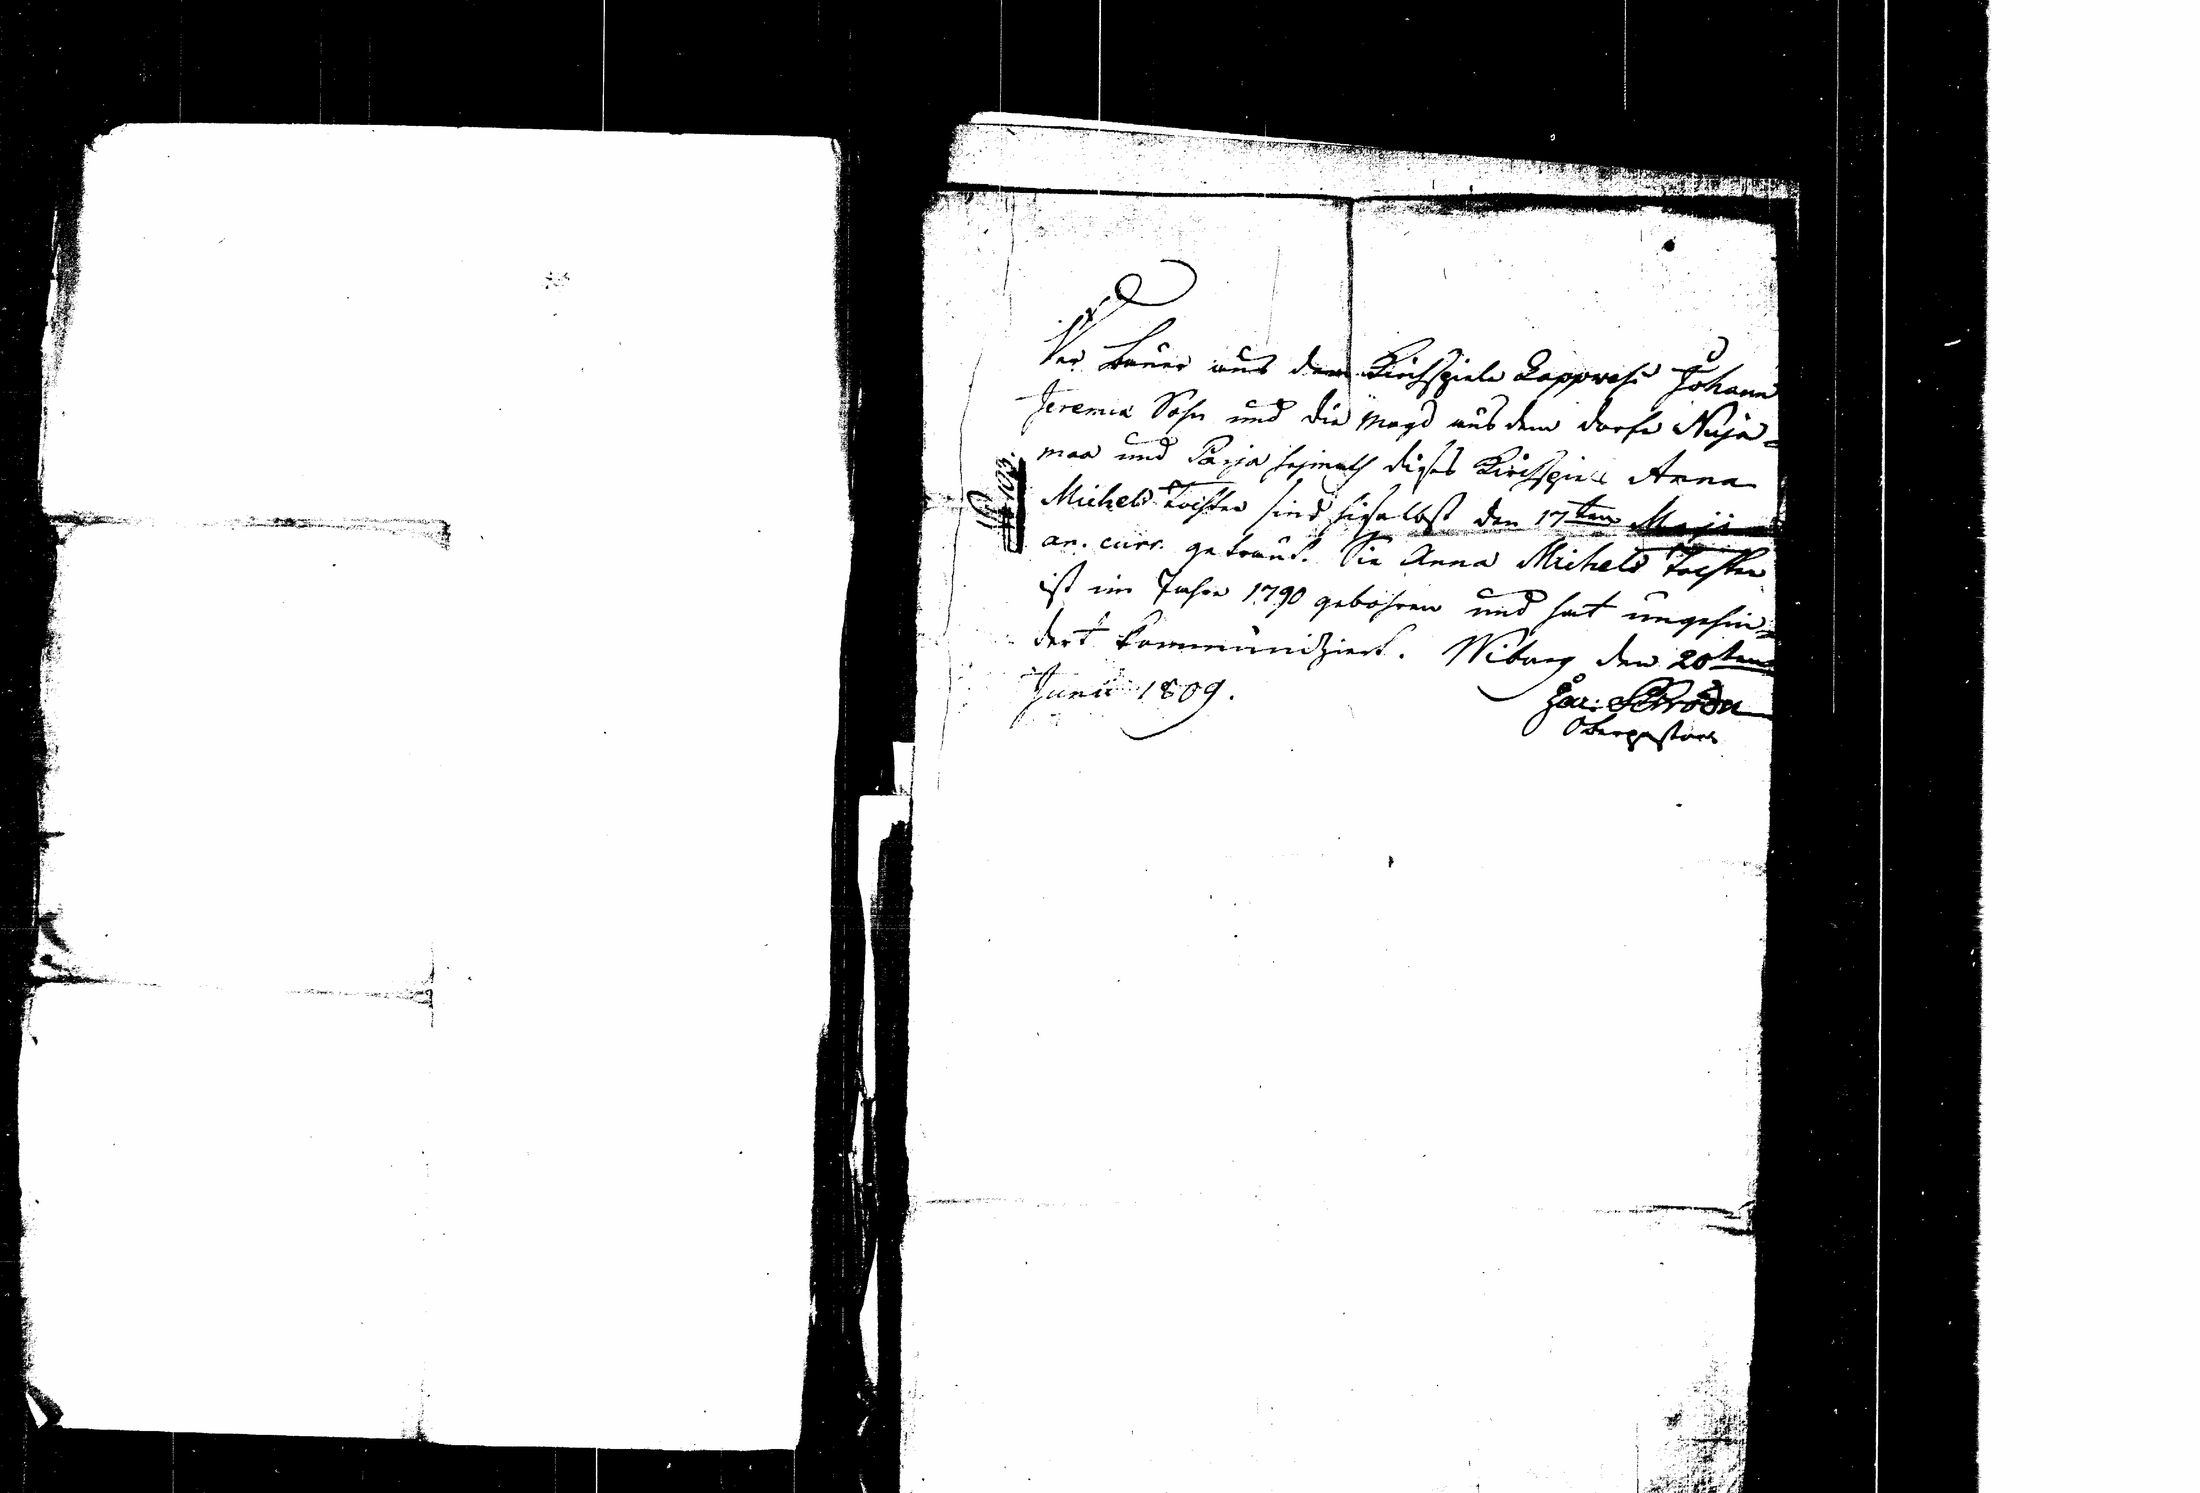 Der Bauer aus dem Kirchspiele Lappwesi Johann
Jeremia Sohn und die Magd aus dem Dorfe Nuija=
maa und Parja Hejmath dieses Kirchspiels Anna
Michels Tochter sind hieselbst den 17ten Maji
an. curr. getraut. Die Anna Michels Tochter
ist im Jahre 1790 gebohren und hat ungehin=
dert kommuniziert. Wiburg den 20ten
Junii 1809.
Oberpastor
103.